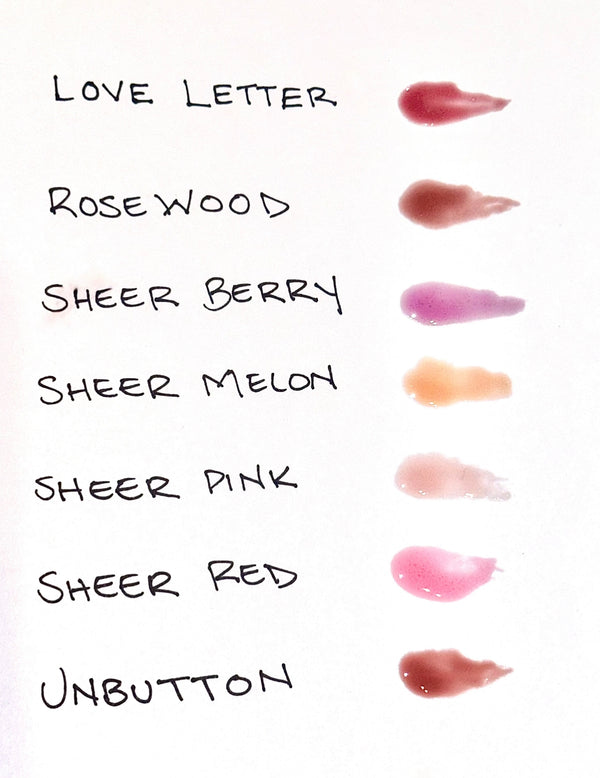 LOVE LETTER
ROSEWOOD
SHEER BERRY
SHEER MELON
SHEER PINK
SHEER RED
UNBUTTON